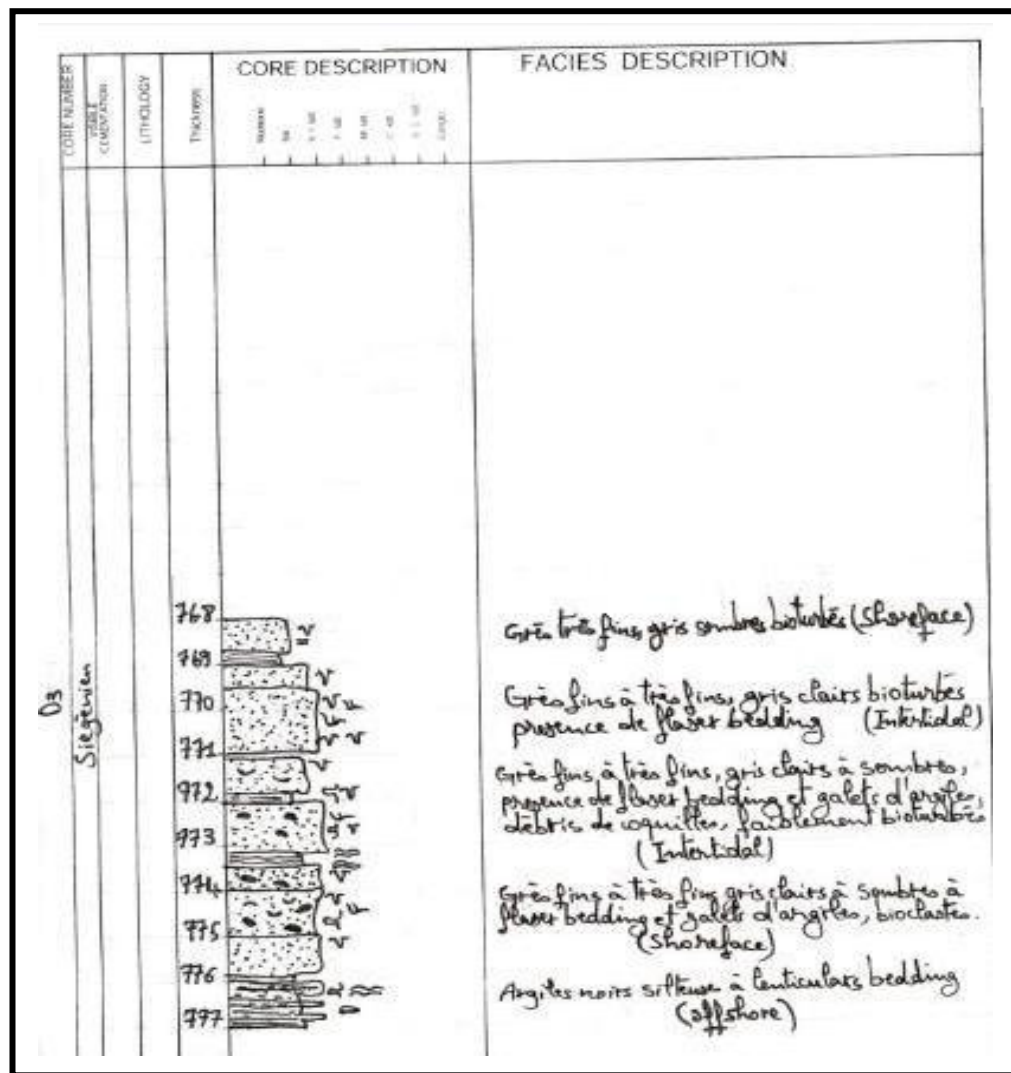 CORE NUMBER
VISIBLE CEMENTATION
LITHOLOGY
Thickness
CORE DESCRIPTION
FACIES DESCRIPTION
D3
Siégènien
768
769
770
771
972
973
774
775
776
777
Grès très fins, gris sombres bioturbés (Shoreface)
Grès fins à très fins, gris clairs bioturbés
presence de flaser bedding (Intertidal)
Grès fins à très fins, gris clairs à sombres,
presence de flaser bedding et galets d'argiles,
débris de coquilles, faiblement bioturbés
(Intertidal)
Grès fins à très fins gris clairs à sombres à
flaser bedding et galets d'argiles, bioclastes.
(Shoreface)
Argiles noirs silteuse à lenticulars bedding
(offshore)